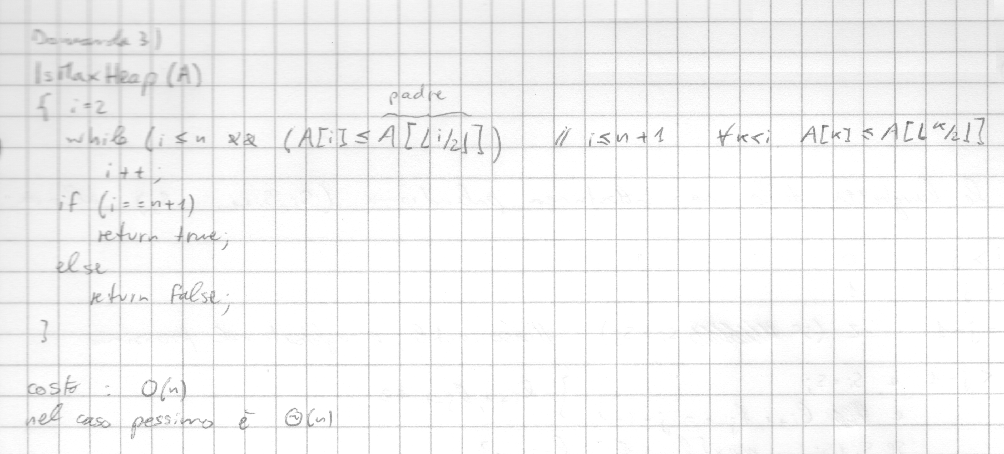 Domanda 3)
IsMaxHeap (A)
{ i=2
padre
while (i ≤ n && (A[i] ≤ A[⌊i/2⌋]) // i≤n+1 ∀k<i A[k] ≤ A[⌊k/2⌋]
i++;
if (i==n+1)
return true;
else
return false;
}
costo : O(n)
nel caso pessimo è Θ(n)